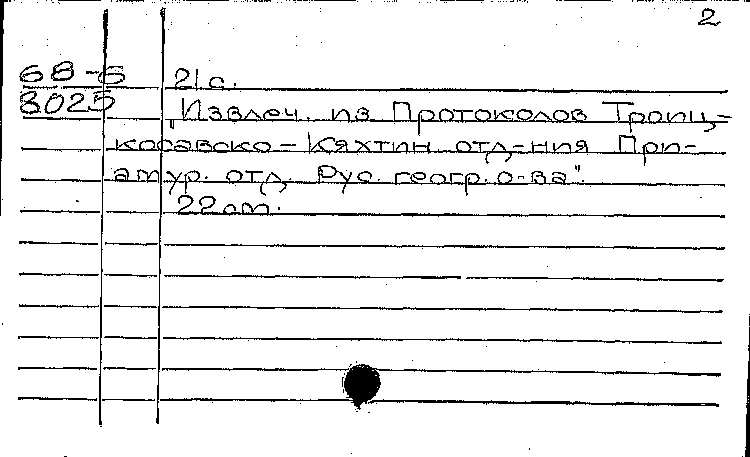 2
68-5 21 с.
8025 „Извлеч. из Протоколов Троиц-
косавско-Кяхтин. отд-ния При-
амур. отд. Рус. геогр. о-ва".
22 cm.